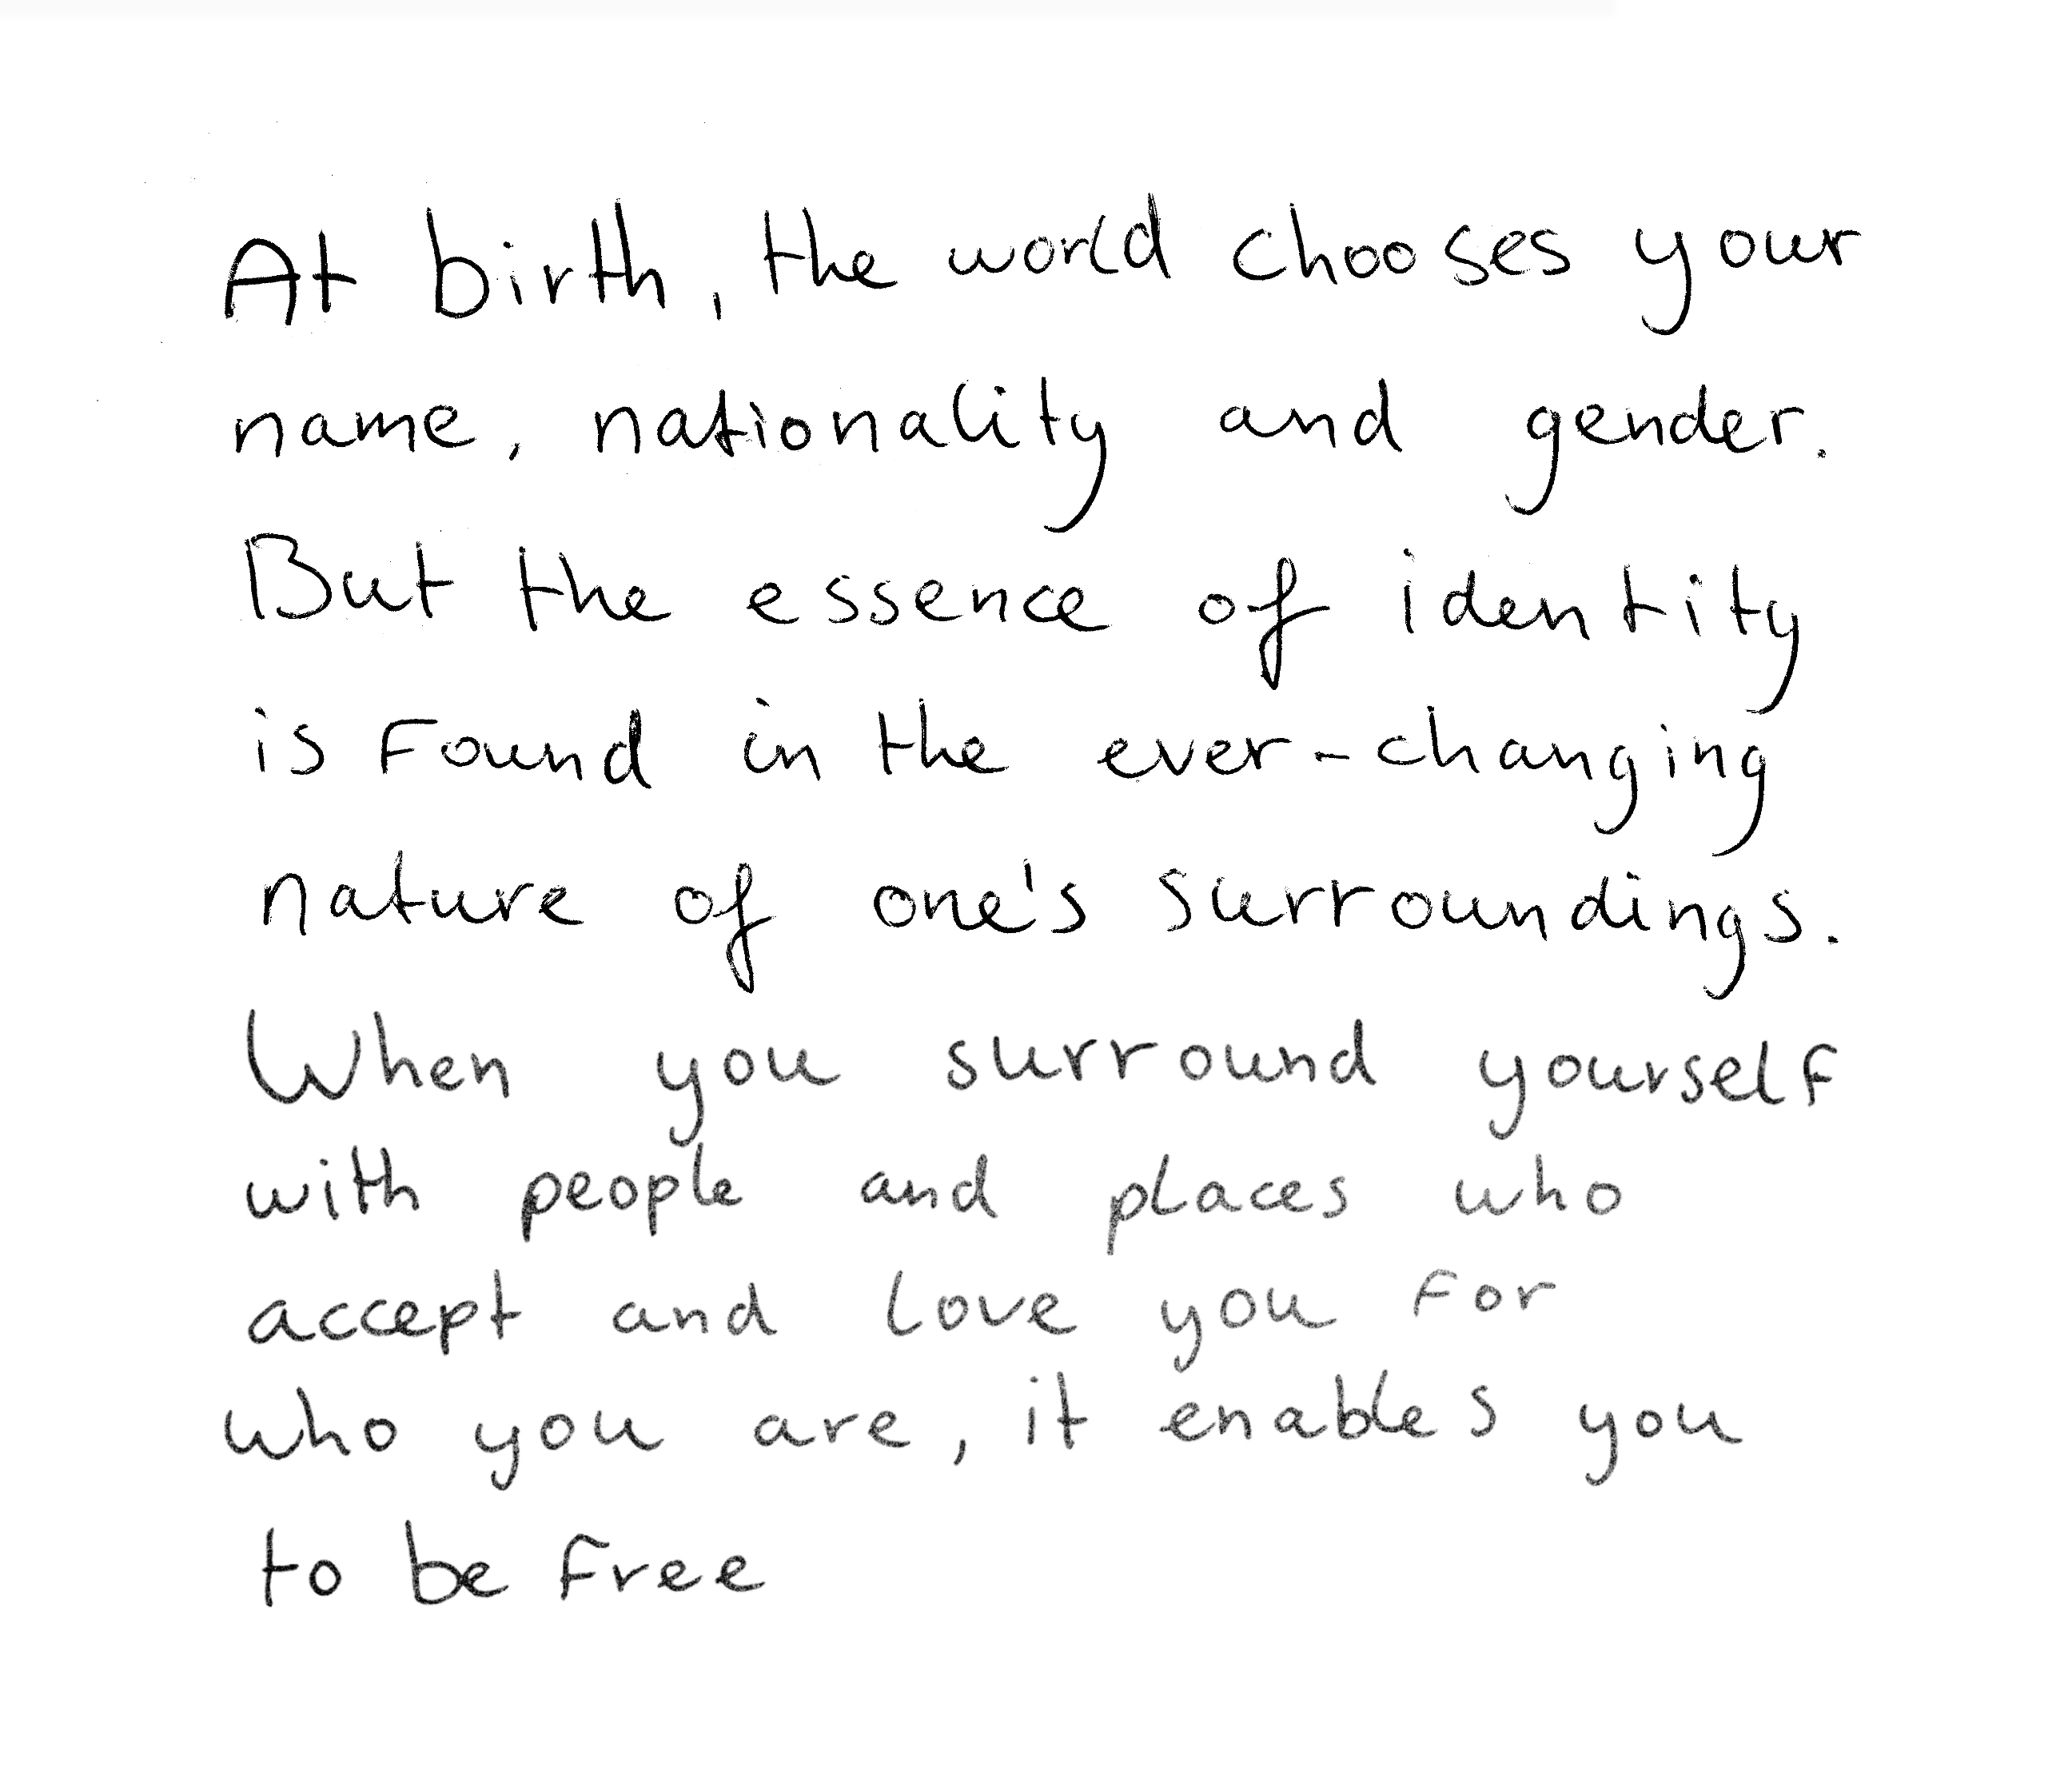 At birth, the world chooses your
name, nationality and gender.
But the essence of identity
is found in the ever-changing
nature of one's surroundings.
When you surround yourself
with people and places who
accept and love you for
who you are, it enables you
to be free